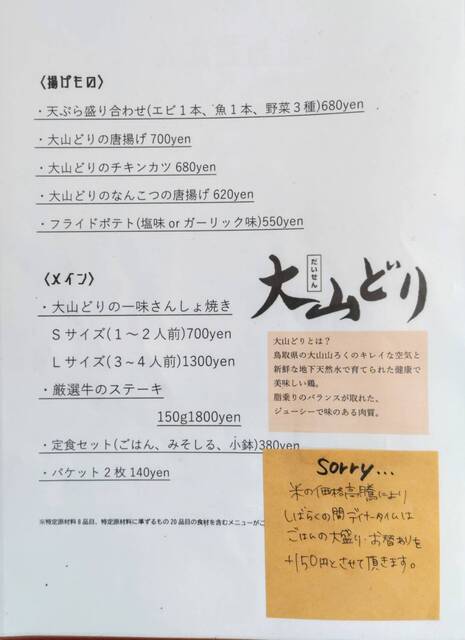 〈揚げもの〉
・天ぷら盛り合わせ(エビ1本、魚1本、野菜3種)680yen
・大山どりの唐揚げ 700yen
・大山どりのチキンカツ 680yen
・大山どりのなんこつの唐揚げ 620yen
・フライドポテト(塩味 or ガーリック味)550yen
〈メイン〉
・大山どりの一味さんしょ焼き
Sサイズ(1〜2人前)700yen
Lサイズ(3〜4人前)1300yen
・厳選牛のステーキ
150g1800yen
・定食セット(ごはん、みそしる、小鉢)380yen
・バケット2枚 140yen
※特定原材料8品目、特定原材料に準ずるもの20品目の食材を含むメニューがご
だいせん
大山どり
大山どりとは?
鳥取県の大山山ろくのキレイな空気と
新鮮な地下天然水で育てられた健康で
美味しい鶏。
脂乗りのバランスが取れた、
ジューシーで味のある肉質。
sorry...
米の価格高騰により
しばらくの間ディナータイムは
ごはんの大盛り・お替わりを
+150円とさせて頂きます。